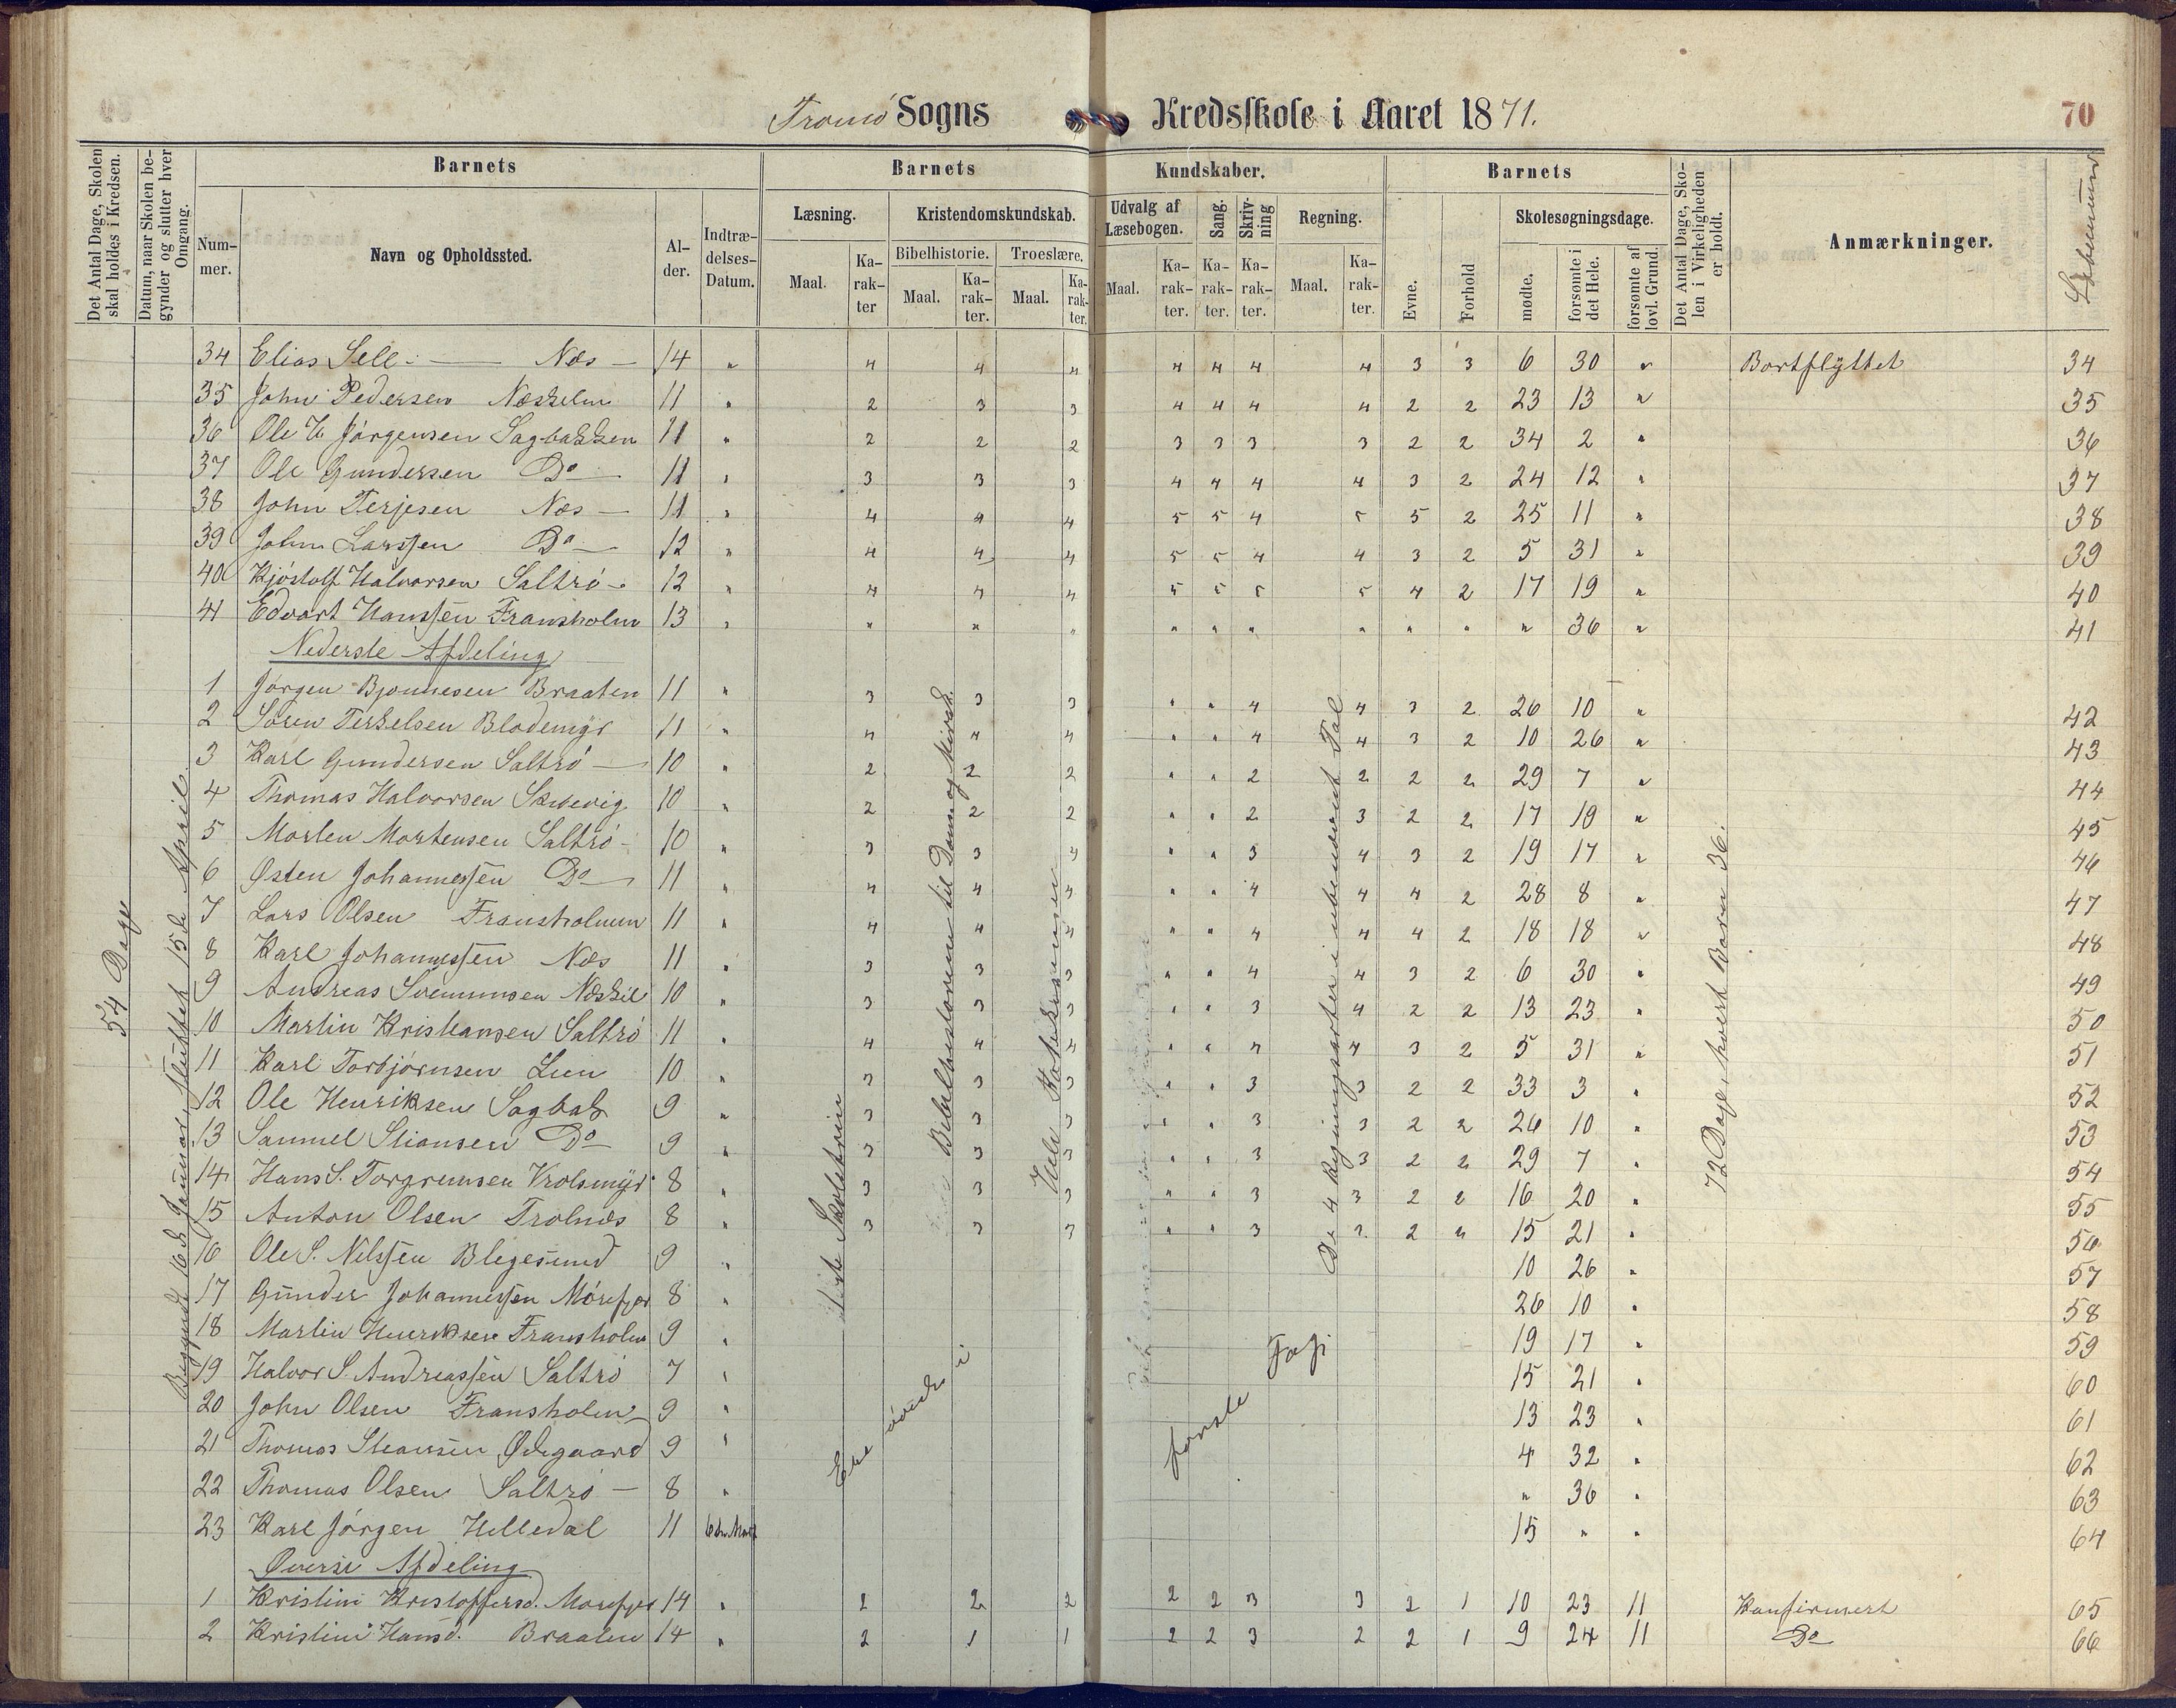 Tromö Sogns Kredsskole i Aaret 1871.
70
Det Antal Dage, Skolen skal holdes i Kredsen.
Datum, naar Skolen begynder og slutter hver Omgang.
Barnets
Nummer.
Navn og Opholdssted.
Alder.
Indtrædelses-Datum.
Barnets Kundskaber.
Læsning.
Kristendomskundskab.
Bibelhistorie.
Troeslære.
Udvalg af Læsebogen.
Sang.
Skrivning
Regning.
Maal. Karakter Maal. Karakter. Maal. Karakter. Maal. Karakter. Karakter. Karakter. Maal. Karakter.
Barnets
Evne.
Forhold
Skolesøgningsdage.
mødte.
forsømte i det Hele.
forsømte af lovl. Grund.
Det Antal Dage, Skolen i Virkeligheden er holdt.
Anmærkninger.
Löbenumr
34 Elias Sell Næs 14 " 4 4 4 4 4 4 4 3 3 6 30 " Bortflyttet 34
35 John Pedersen Næskilen 11 " 2 3 3 4 4 4 4 2 2 23 13 " 35
36 Ole H. Jörgensen Sagbakken 11 " 2 2 2 3 3 3 3 2 2 34 2 " 36
37 Ole Gundersen Do 11 " 3 3 3 4 4 4 4 3 2 24 12 " 37
38 John Terjesen Næs 11 " 4 4 4 5 5 4 5 5 2 25 11 " 38
39 John Larssen Do 12 " 4 4 4 5 5 4 4 3 2 5 31 " 39
40 Kjöstolf Halvorsen Saltrö 12 " 4 4 4 5 5 5 5 4 2 17 19 " 40
41 Edvart Hanssen Fransholm 13 " " " " " " " " " " " 36 " 41
Nederste Afdeling
1 Jörgen Bjonnesen Braaten 11 " 3 3 3 " " 4 4 3 2 26 10 " 42
2 Sören Terkelsen Blodemyr 11 " 4 4 4 " " 4 4 3 2 10 26 " 43
3 Karl Gundersen Saltrö 10 " 2 2 2 " " 2 2 2 2 29 7 " 44
4 Thomas Halvorsen Skibevig 10 " 2 2 2 " " 2 3 2 2 17 19 " 45
5 Morten Mortensen Saltrö 10 " 3 3 3 " " 3 4 3 2 19 17 " 46
6 Østen Johannessen Do 11 " 4 4 4 " " 4 4 4 2 28 8 " 47
7 Lars Olsen Fransholmen 11 " 4 4 4 " " 4 4 4 2 18 18 " 48
8 Karl Johannessen Næs 11 " 3 3 3 " " 4 4 3 2 6 30 " 49
9 Andreas Svennunsen Næskil 10 " 3 3 3 " " 3 4 2 2 13 23 " 50
10 Martin Kristiansen Saltrö 11 " 4 4 4 " " 4 4 3 2 5 31 " 51
11 Karl Torbjörnsen Lien 10 " 3 3 3 " " 3 3 2 2 33 3 " 52
12 Ole Henriksen Sagbak 9 " 3 3 3 " " 3 3 2 2 26 10 " 53
13 Samuel Stiansen Do 9 " 3 3 3 " " 3 3 2 2 29 7 " 54
14 Hans S. Torgrimsen Krolsmyr 8 " 3 3 3 " " 3 3 2 2 16 20 " 55
15 Anton Olsen Trolnæs 8 " 3 3 3 " " 3 3 2 " 15 21 " 56
16 Ole S. Nilssen Blegesund 9 " 10 26 " 57
17 Gunder Johannessen Mörefjær 8 " 26 10 " 58
18 Martin Henriksen Fransholm 9 " 19 17 " 59
19 Halvor S. Andreassen Saltrö 7 " 15 21 " 60
20 John Olsen Fransholm 9 " 13 23 " 61
21 Thomas Steansen Ødegaard 9 " 4 32 " 62
22 Thomas Olsen Saltrö 8 " " 36 " 63
23 Karl Jörgen Helledal 11 6te Marts 15 " " 64
Øverst Afdeling
1 Kristine Kristoffersd. Morefjær 14 " 2 2 2 2 2 3 3 2 1 10 23 11 Konfirmert 65
2 Kristine Hansd. Braaten 14 " 2 1 1 2 2 3 2 2 1 9 24 11 Do 66
54 Dage
Begyndt 16de Januar, sluttet 15de April
Sidste Skolstrin
Bibelhistorien til Dom og Mirak.
Hele Katekismusen
De 4 Regningsarter i ubenævnt Tal
72 Dage, hvert Barn 36.
Ere övede i förste